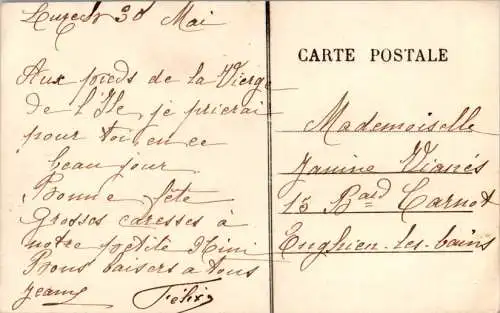 30 Mai
Aux pieds de la Vierge
de l'Ile, je prierai
pour toi, en ce
beau jour
Bonne fête
Grosses caresses à
notre petite Mini
Bons baisers a tous
Jeanne Félix
CARTE POSTALE
Mademoiselle
Janine Vianès
15 Bard Carnot
Enghien-les-bains